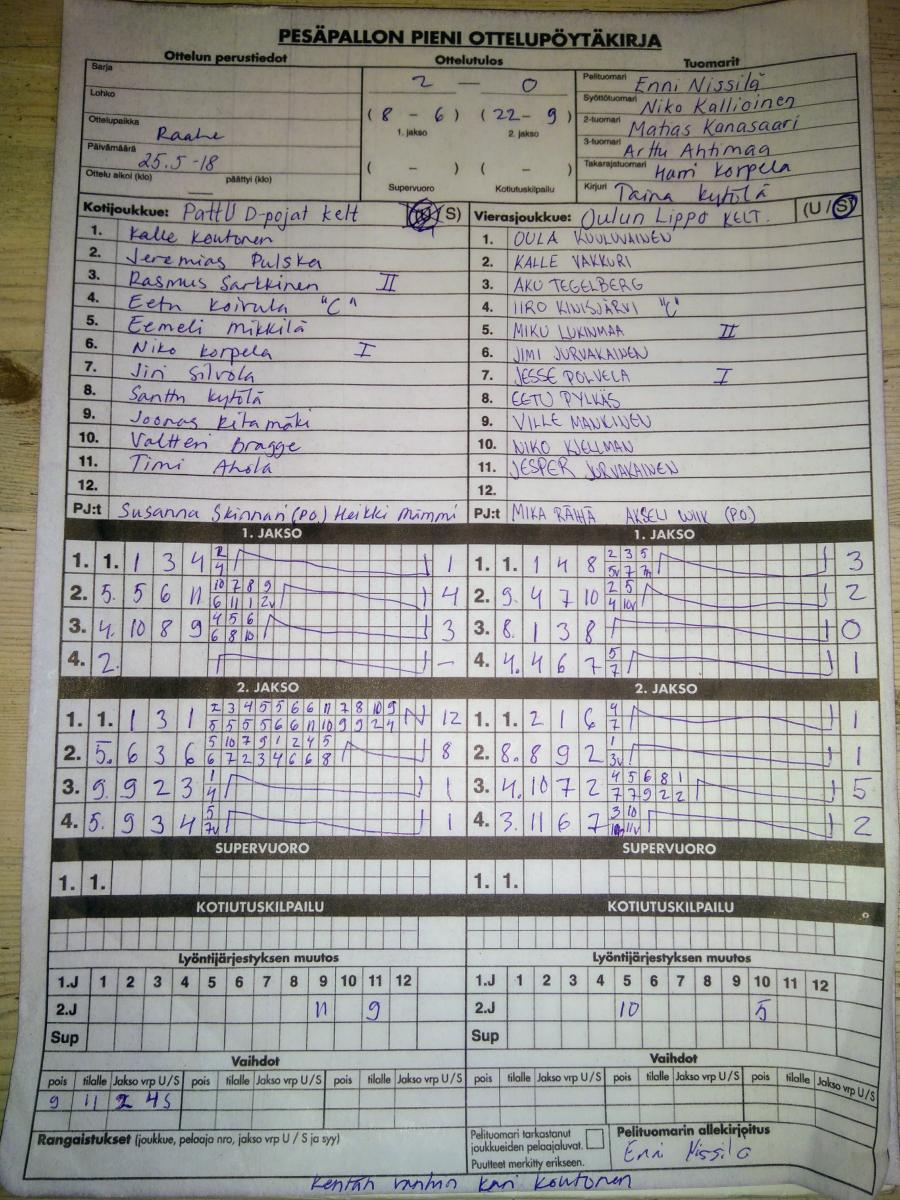 PESÄPALLON PIENI OTTELUPÖYTÄKIRJA
Ottelun perustiedot Ottelutulos Tuomarit
Sarja
Lohko
Ottelupaikka Raahe
Päivämäärä 25.5-18
Ottelu alkoi (klo) päättyi (klo)
2 — 0
(8 - 6) (22 - 9)
1. jakso 2. jakso
( - ) ( - )
Supervuoro Kotiutuskilpailu
Pelituomari Enni Nissilä
Syöttötuomari Niko Kallioinen
2-tuomari Matias Kanasaari
3-tuomari Arttu Ahtimaa
Takarajatuomari Harri Korpela
Kirjuri Taina Kytölä
Kotijoukkue: PattU D-pojat kelt S)
1. Kalle Koutonen
2. Jeremias Pulska
3. Rasmus Sarkkinen II
4. Eetu Koivula "C"
5. Eemeli Mikkilä
6. Niko Korpela I
7. Jiri Silvola
8. Santtu Kytölä
9. Joonas
10. Valtteri Bragge
11. Timi Ahola
12.
PJ:t Susanna Skinnari (PO) Heikki Mimmi
Vierasjoukkue: Oulun Lippo KELT. (U / S)
1. OULA KUULUVAINEN
2. KALLE VAKKURI
3. AKU TEGELBERG
4. IIRO KIVISJÄRVI "C"
5. MIKU LUKINMAA II
6. JIMI JURVAKAINEN
7. JESSE POLVELA I
8. EETU PYLKÄS
9. VILLE MANKINEN
10. NIKO KJELLMAN
11. JESPER JURVAKAINEN
12.
PJ:t MIKA RÄIHÄ AKSELI WIIK (PO)
1. JAKSO
1. 1. 1 3 4 2 1
4
2. 5. 5 6 11 10 7 8 9 4
6 11 1 2v
3. 4. 10 8 9 4 5 6 3
6 8 10
4. 2. -
1. JAKSO
1. 1. 1 4 8 2 3 5 3
5v 7
2. 9. 4 7 10 2 5 2
4 10v
3. 8. 1 3 8 0
4. 4. 4 6 7 5 1
7
2. JAKSO
1. 1. 1 3 1 2 3 4 5 5 6 6 11 7 8 10 9 12
5 5 5 5 6 6 11 10 9 9 2 4
2. 5. 6 3 6 5 10 7 9 1 2 4 5 8
6 7 2 3 4 6 6 8
3. 9. 9 2 3 1 1
4
4. 5. 9 3 4 5 1
7v
2. JAKSO
1. 1. 2 1 6 4 1
7
2. 8. 8 9 2 1 1
3v
3. 4. 10 7 2 4 5 6 8 1 5
7 7 9 2 2
4. 3. 11 6 7 3 10 2
11v
SUPERVUORO SUPERVUORO
1. 1. 1. 1.
KOTIUTUSKILPAILU KOTIUTUSKILPAILU
Lyöntijärjestyksen muutos Lyöntijärjestyksen muutos
1.J 1 2 3 4 5 6 7 8 9 10 11 12 1.J 1 2 3 4 5 6 7 8 9 10 11 12
2.J 11 9 2.J 10 5
Sup Sup
Vaihdot Vaihdot
pois tilalle Jakso vrp U/S pois tilalle Jakso vrp U/S pois tilalle Jakso vrp U/S pois tilalle Jakso vrp U/S pois tilalle Jakso vrp U/S pois tilalle Jakso vrp U/S
9 11 2 4S
Rangaistukset (joukkue, pelaaja nro, jakso vrp U / S ja syy)
Pelituomari tarkastanut
joukkueiden pelaajaluvat.
Puutteet merkitty erikseen.
Pelituomarin allekirjoitus
Enni Nissilä
Kentän vanhin Kari Koutonen